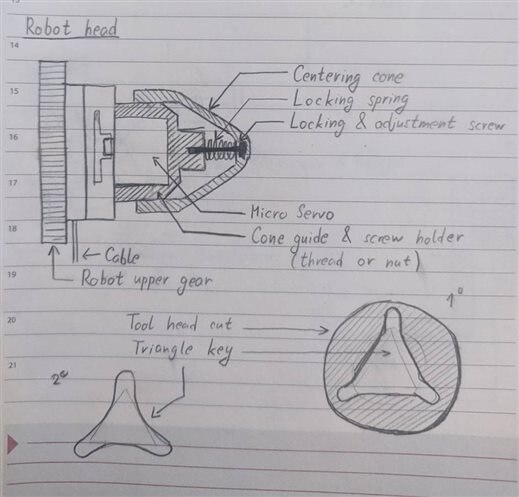 Robot head
14
15
16
17
18
19
20
21
Centering cone
Locking spring
Locking & adjustment screw
Micro Servo
Cone guide & screw holder
(thread or nut)
Cable
Robot upper gear
1º
Tool head cut
Triangle key
2º